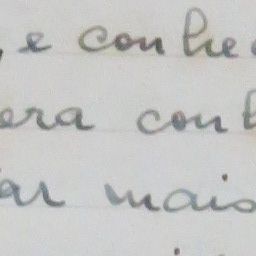 , e conhe
era con
ar mais